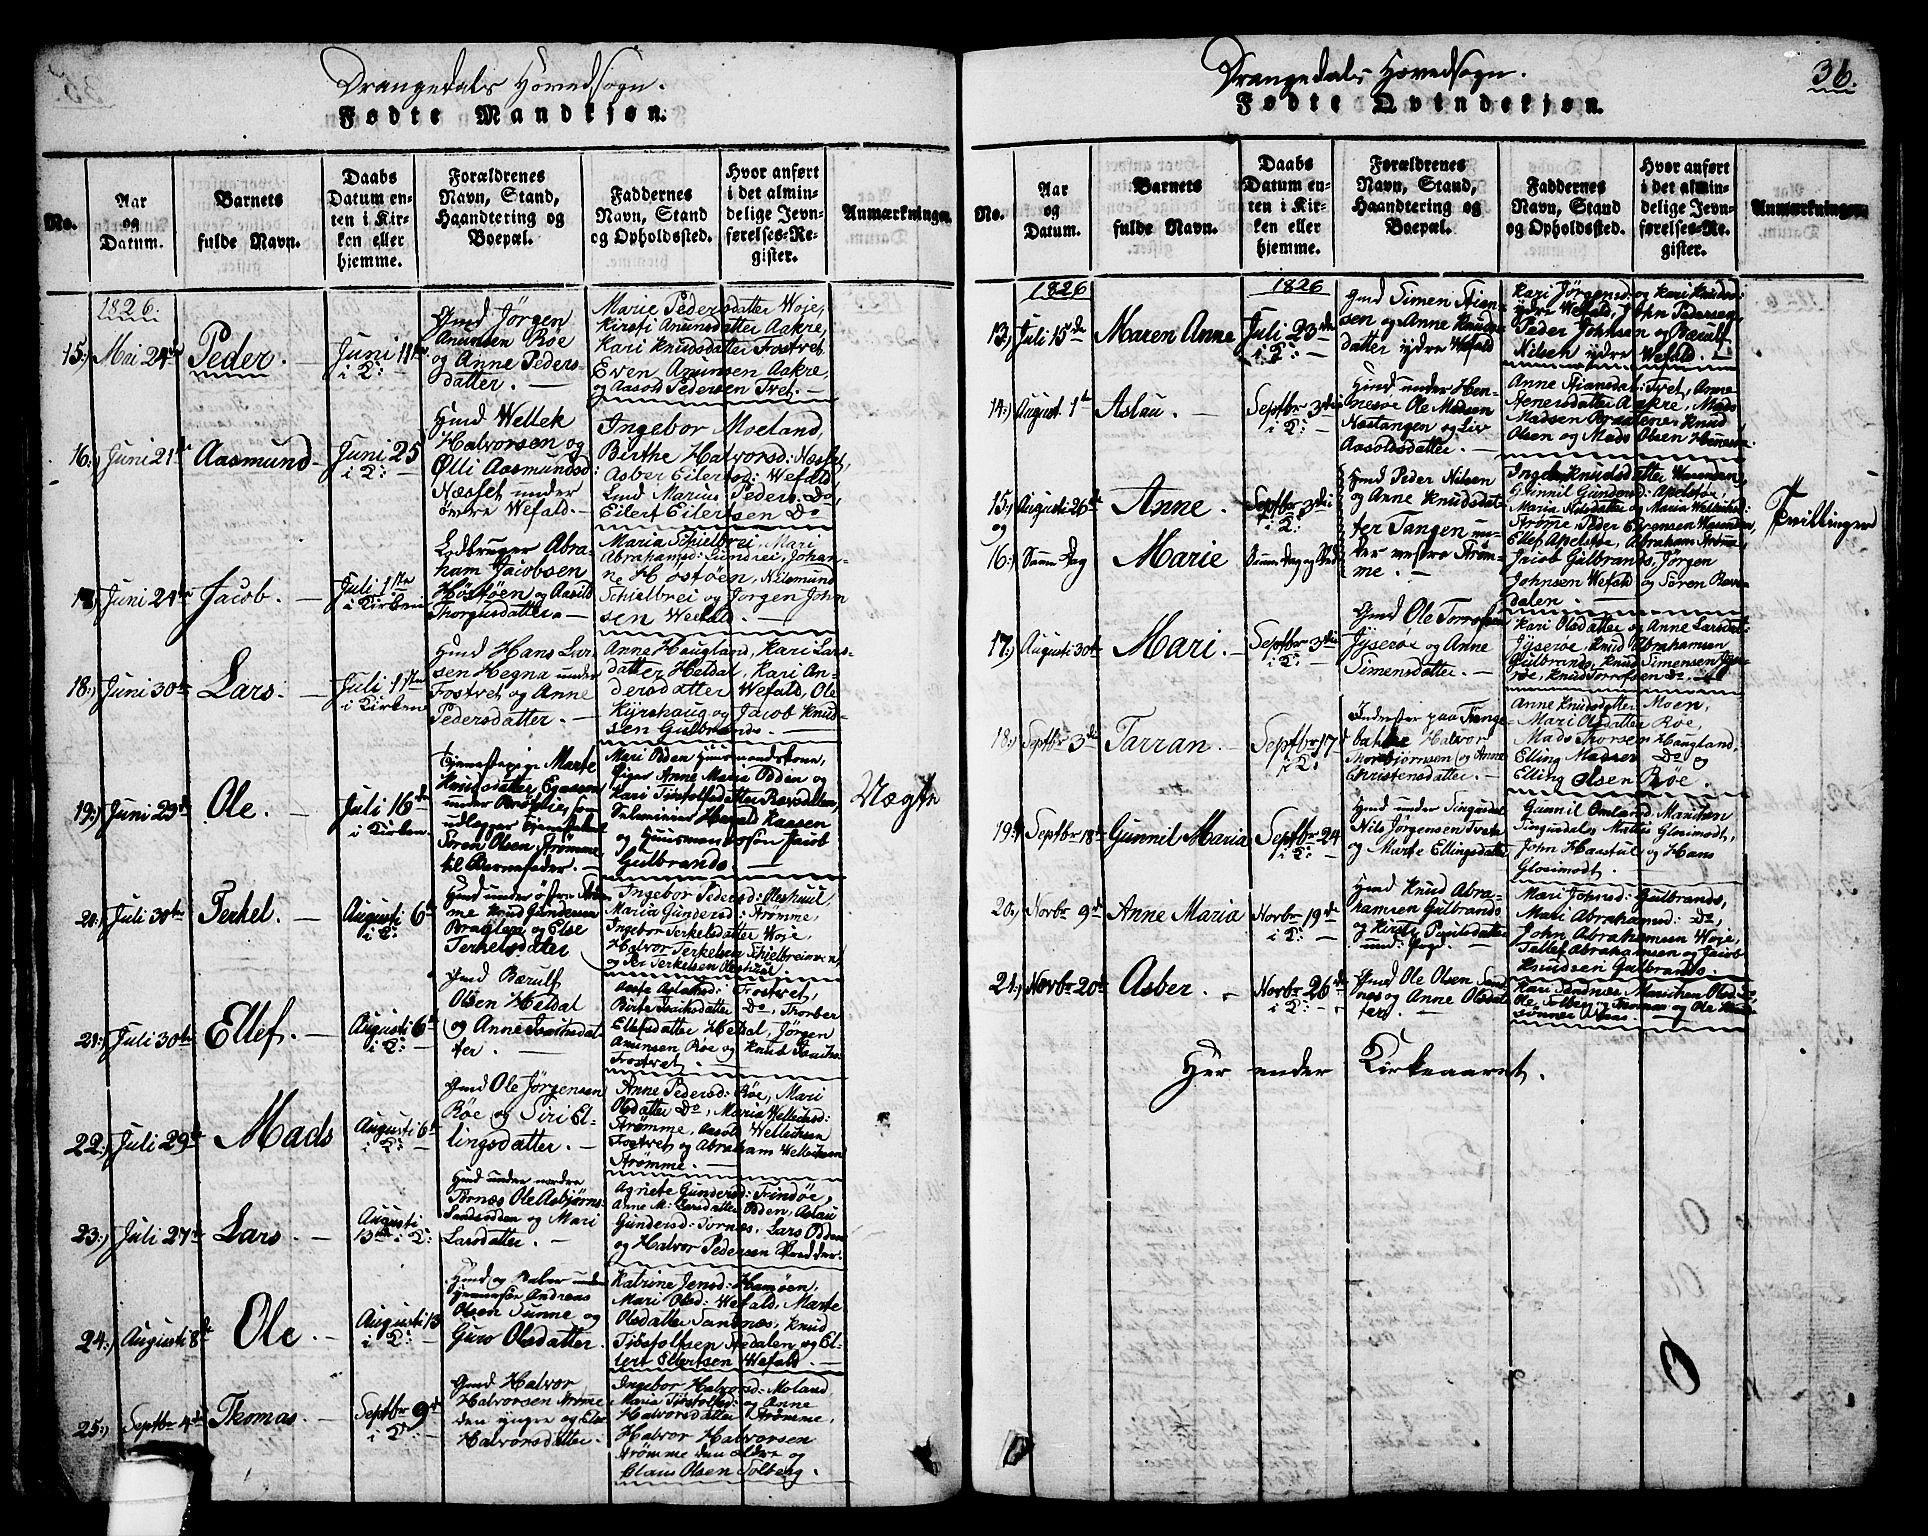 Drangedals Hovedsogn.
Fødte Mandkjøn.
No.
Aar
og
Datum.
Barnets
fulde Navn.
Daabs
Datum en-
ten i Kir-
ken eller
hjemme.
Forældrenes
Navn, Stand,
Haandtering og
Boepæl.
Faddernes
Navn, Stand
og Opholdssted.
Hvor anført
i det almin-
delige Jevn-
førelses-Re-
gister.
Anmærkninger
1826.
15.) Mai 24de Peder. Juni 11te
i D:
Gmd Jørgen
Anunsen Roe
og Anne Peders-
datter.
Marie Pedersdatter Woje,
Kirsti Anunsdatter Aakre,
Kari Knudsdatter Fostvet,
Even Anunsen Aakre,
og Aasold Pedersen Tvet.
16.) Juni 21de Aasmund Juni 25
i D:
Hmd Wellek
Halvorsen og
Olli Aasmundsd:
Næsset under
øvre Wefald.
Ingebor Moeland,
Birthe Halvorsd: Næsset,
Asber Eilertsd: Wefald,
Gmd Marius Peders: Do,
Eilert Eilertsen Do
17.) Juni 24de Jacob. Juli 1ste
i Kirken
Lodbruger Abra-
ham Jacobsen
Høstøen og Aasild
Thorgusdatter.
Maria Schielbrei, Mari
Abrahamsd: Lundrei, Johan-
ne Høstøen, Nilsmund
Schielbrei og Jørgen John
sen Wefald.
18.) Juni 30te Lars. Juli 1ste
i Kirken
Hmd Hans Lar-
sen Hegna under
Fostvet og Anne
Pedersdatter.
Anne Haugland, Kari Lars-
datter Heldal, Kari An-
dersdatter Wefald, Ole
Kyrshaug og Jacob Knud-
sen Gulbrands.
19.) Juni 29de Ole Juli 16de
i Kirken
Tjenestepige Marte
Knudsdatter
under som
udlægger
Søren Olsen Strømme
til Barnefader.
Mari Odden Huusmandskone,
Piger Anne Maria Odden og
Kari Tistolfsdatter Røesdalen,
Harald Kaasen
og Huusmandssøn Jacob
Gulbrands
Uægte
20.) Juli 30te Terkel. Augusti 6te
i D:
Hmd under østre Strøm-
me Knud Gundersen
og Else
Terkelsdatter
Ingebor Pedersd: Oleshuul
Maria Gundersd: Strømme,
Ingebor Terkelsdatter Woje,
Halvor Terkelsen Schielbreien
og Per Terkelsen Oleshuul.
21.) Juli 30te Ellef. Augusti 6te
i D:
Gmd Bærulf
Olsen Heldal
og Anne Isachsdat-
ter.
Aase Aslaksd: Fostvet,
Birte Isachsdatter Do, Thorber
Ellefsdatter Heldal, Jørgen
Anunsen Røe og Knud Isachs:
Fostvet.
22.) Juli 29de Mads Augusti 6te
i D:
Gmd Ole Jørgensen
Røe og Siri El-
lingsdatter.
Anne Pedersd: Røe, Mari
Olsdatter Do, Maria Welleksd:
Strømme, Aasold Welleksen
Fostvet og Abraham Welleksen
Strømme.
23.) Juli 27de Lars. Augusti
13de i D:
Hmd under nordre
Tørnæs Ole Asbjørns:
Sandsodden og Mari
Larsdatter.
Agnete Gundersd: Findøe,
Anne M: Larsdatter Odden, Aslau
Gundersd: Tornæs, Lars Odden
og Halvor Pedersen
24.) Augusti 8de Ole. Augusti 13
i D:
Andreas
Olsen Sunne og
Guro Olsdatter.
Katrine Jensd: Hamøen,
Mari Olsd: Wefald, Marte
Olsdatter Sandnæs, Knud
Tistolfsen Stedalen og Ei-
lert Eilertsen Wefald.
25.) Septbr 4de Thomas. Septbr 9de
i D:
Gmd Halvor
Halvorsen Strømme
den yngre og Else
Halvorsdatter.
Ingebor Halvorsd: Moland
Maria Tistolfsd: og Anne
Halvorsdatter Strømme,
Halvor Halvorsen
Strømme den ældre og
Claus Olsen Solberg.
Drangedals Hovedsogn.
36.
Fødte Qvindekjøn.
No.
Aar
og
Datum.
Barnets
fulde Navn.
Daabs
Datum en-
ten i Kir-
ken eller
hjemme.
Forældrenes
Navn, Stand,
Haandtering og
Boepæl.
Faddernes
Navn, Stand
og Opholdssted.
Hvor anført
i det almin-
delige Jevn-
førelses-Re-
gister.
Anmærkninger
1826 1826
13.) Juli 15de Maren Anne Juli 23de
i D:
Gmd Simen Stian-
sen og Anne Knuds-
datter ydre Wefald
Kari Jørgensd: og Kari Knudsd:
ydre Wefald, John Pedersen,
Peder Johsen og Bærulf
Nilsen ydre Wefald.
14.) August 1te Aslau. Septbr 3die
i D:
Hmd under Hen-
nesøe Ole Madsen
Næstangen og Liv
Aasoldsdatter.
Anne Stiansdat: Tvet, Anne
Stenersdatter Aakre, Mads
Madsen Brødalene, Knud
Olsen og Mads Olsen Hennesøe
15.) Augusti 26de Anne. Septbr 3die
i D:
og
16.) Samme Dag Marie Samme Dag og Sted
Hmd Peder Nilsen
og Anne Knudsdat-
ter Tangen un-
der vestre Strøm-
me.
Inge Knudsdatter Waasdøn,
Gunnil Gundersd: Apelstøe,
Maria Nilsdatter og Maria Welleksd:
Strømme, Peder
Ellef Apelstøe, Abraham Strømme,
Jacob Gulbrands, Jørgen
Johnsen Wefald og Søren Røes-
dalen.
Tvillinger
17.) Augusti 30te Mari. Septbr 3die
i D:
Gmd Ole Torrofsen
Jyserøe og Anne
Simensdatter.
Kari Olsdatter og Anne Larsdat:
Jyserøe, Knud Abrahamsen
Gulbrands, Knud Simensen Jyse-
røe, Knud Torrofsen Do.
18.) Septbr 3die Tarran. Septbr 17de
i D:
Inderster paa Tange-
bakke Halvor
Thorbjørnsen og Anne
Christensdatter.
Anne Knudsdatter Moen,
Mari Olsdatter Røe,
Mads Thorsen Haugland,
Elling Madsen Do og
Elling Olsen Røe.
19.) Septbr 18de Gunnil Maria Septbr 24
i D:
Hmd under Singusdal
Nils Jørgensen Tveta
og Marte Ellingsdatter
Gunnil Omland, Marichen
Singusdal, Mattis Gloimodt,
John Haastul og Hans
Gloeimodt.
20.) Novbr 9de Anne Maria Novbr 19de
i D:
Hmd Knud Abra-
hamsen Gulbrands
og Kirsti
Mari Johnsd: Gulbrands,
Mari Abrahamsd: Do,
John Abrahamsen Woje,
Tallef Abrahamsen og Jacob
Knudsen Gulbrands.
21.) Novbr 20de Asber. Novbr 26de
i D:
Gmd Ole Olsen Sand-
næs og Anne Olsdat-
ter.
Kari Sandnæs, Marichen Olsd: Do,
Ole Solberg og Thomas og Ole
sønner
Her ender Kirkeaaret.